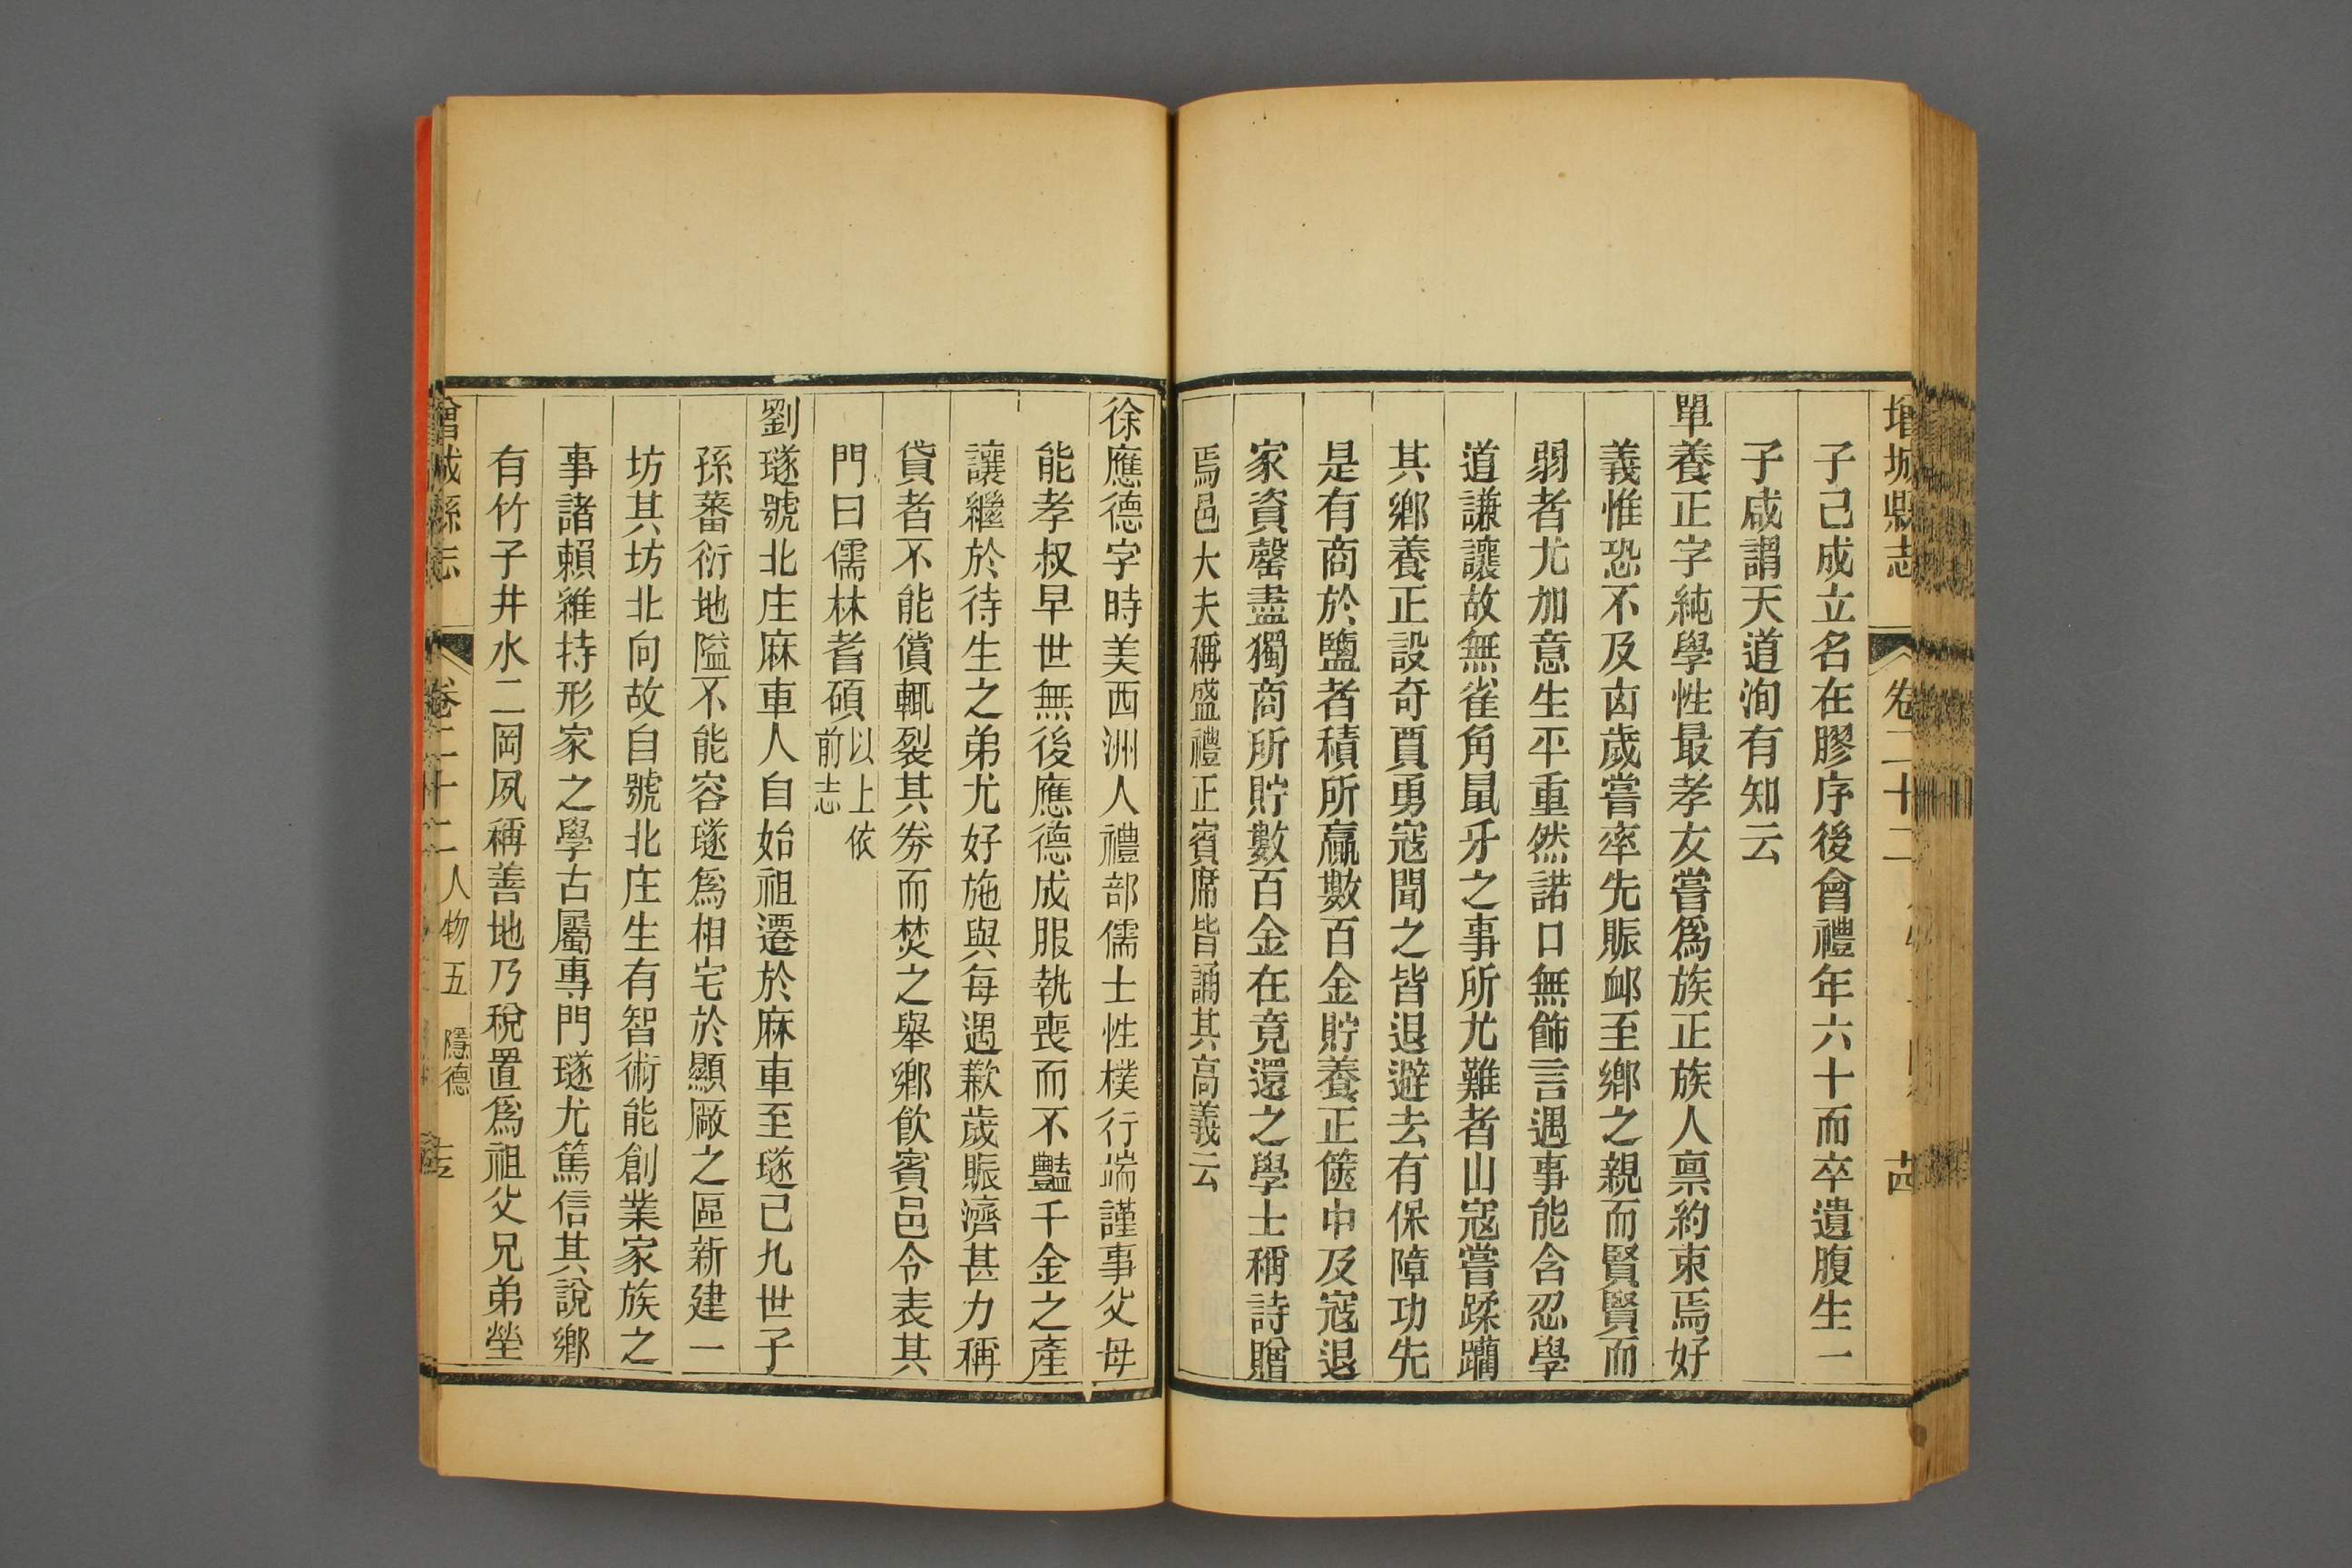 增城縣志 卷二十二 十四
子已成立名在膠序後會禮年六十而卒遺腹生一
子咸謂天道洵有知云
單養正字純學性最孝友嘗爲族正族人禀約束焉好
義惟恐不及凶歲嘗率先賑卹至鄉之親而賢賢而
弱者尤加意生平重然諾口無飾言遇事能含忍學
道謙讓故無雀角鼠牙之事所尤難者山寇嘗蹂躪
其鄉養正設奇買勇寇聞之皆退避去有保障功先
是有商於鹽者積所贏數百金貯養正篋中及寇退
家資罄盡獨商所貯數百金在竟還之學士稱詩贈
焉邑大夫稱盛禮正賓席皆誦其高義云
徐應德字時美西洲人禮部儒士性樸行端謹事父母
能孝叔早世無後應德成服執喪而不豔千金之產
讓繼於待生之弟尤好施與每遇歉歲賑濟甚力稱
貸者不能償輒裂其劵而焚之舉鄉飲賓邑令表其
門曰儒林耆碩以上依前志
劉璲號北庄麻車人自始祖遷於麻車至璲已九世子
孫蕃衍地隘不能容璲爲相宅於顯厰之區新建一
坊其坊北向故自號北庄生有智術能創業家族之
事諸賴維持形家之學古屬專門璲尤篤信其說鄉
有竹子井水二岡夙稱善地乃稅置爲祖父兄弟塋
增城縣志 卷二十二 人物五 隱德 十五